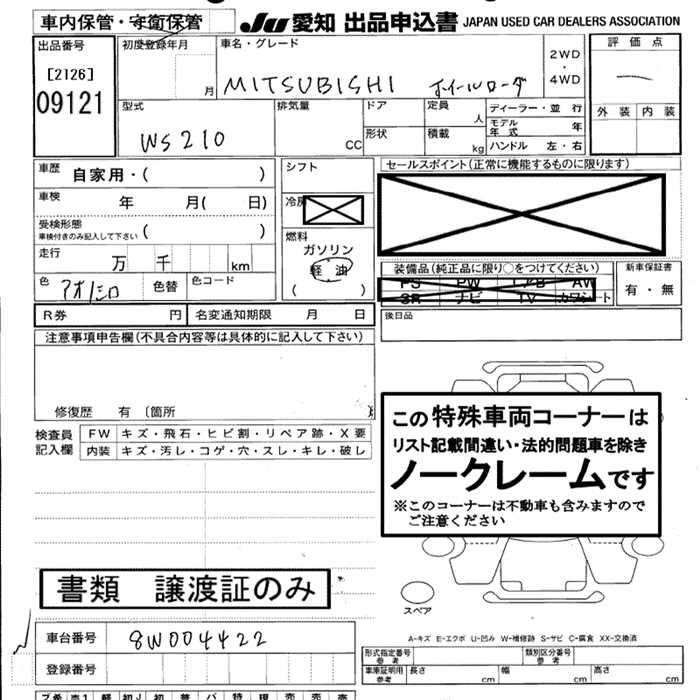 車内保管・守衛保管 JU 愛知 出品申込書 JAPAN USED CAR DEALERS ASSOCIATION
出品番号 初度登録年月 車名・グレード 2WD・4WD 評価点
[2126]
09121
月 MITSUBISHI ホイールローダ
外装 内装
型式 排気量 ドア 定員 人 ディーラー・並行
WS210 CC 形状 積載 kg モデル年式 年
ハンドル 左・右
車歴 自家用・( ) シフト セールスポイント(正常に機能するものに限ります)
車検 年 月( 日) 冷房
受検形態 ( )
車検付きのみ記入して下さい
燃料
ガソリン
軽油
( )
走行 万 千 km
装備品(純正品に限り○をつけてください) 新車保証書
PS PW エアB AW 有・無
SR ナビ TV カワシート
色 アオ/シロ 色替 色コード
R券 円 名変通知期限 月 日 後日品
注意事項申告欄(不具合内容等は具体的に記入して下さい)
修復歴 有 〔箇所
検査員記入欄 FW キズ・飛石・ヒビ割・リペア跡・X要
内装 キズ・汚レ・コゲ・穴・スレ・キレ・破し
この特殊車両コーナーは
リスト記載間違い・法的問題車を除き
ノークレームです
※このコーナーは不動車も含みますので
ご注意ください
書類 譲渡証のみ
スペア
A-キズ E-エクボ U-凹み W-補修跡 S-サビ C-腐食 XX-交換済
車台番号 8W004422
登録番号
形式指定番号 参考 類別区分番号 参考
車庫証明用 参考 長さ cm 幅 cm 高さ cm